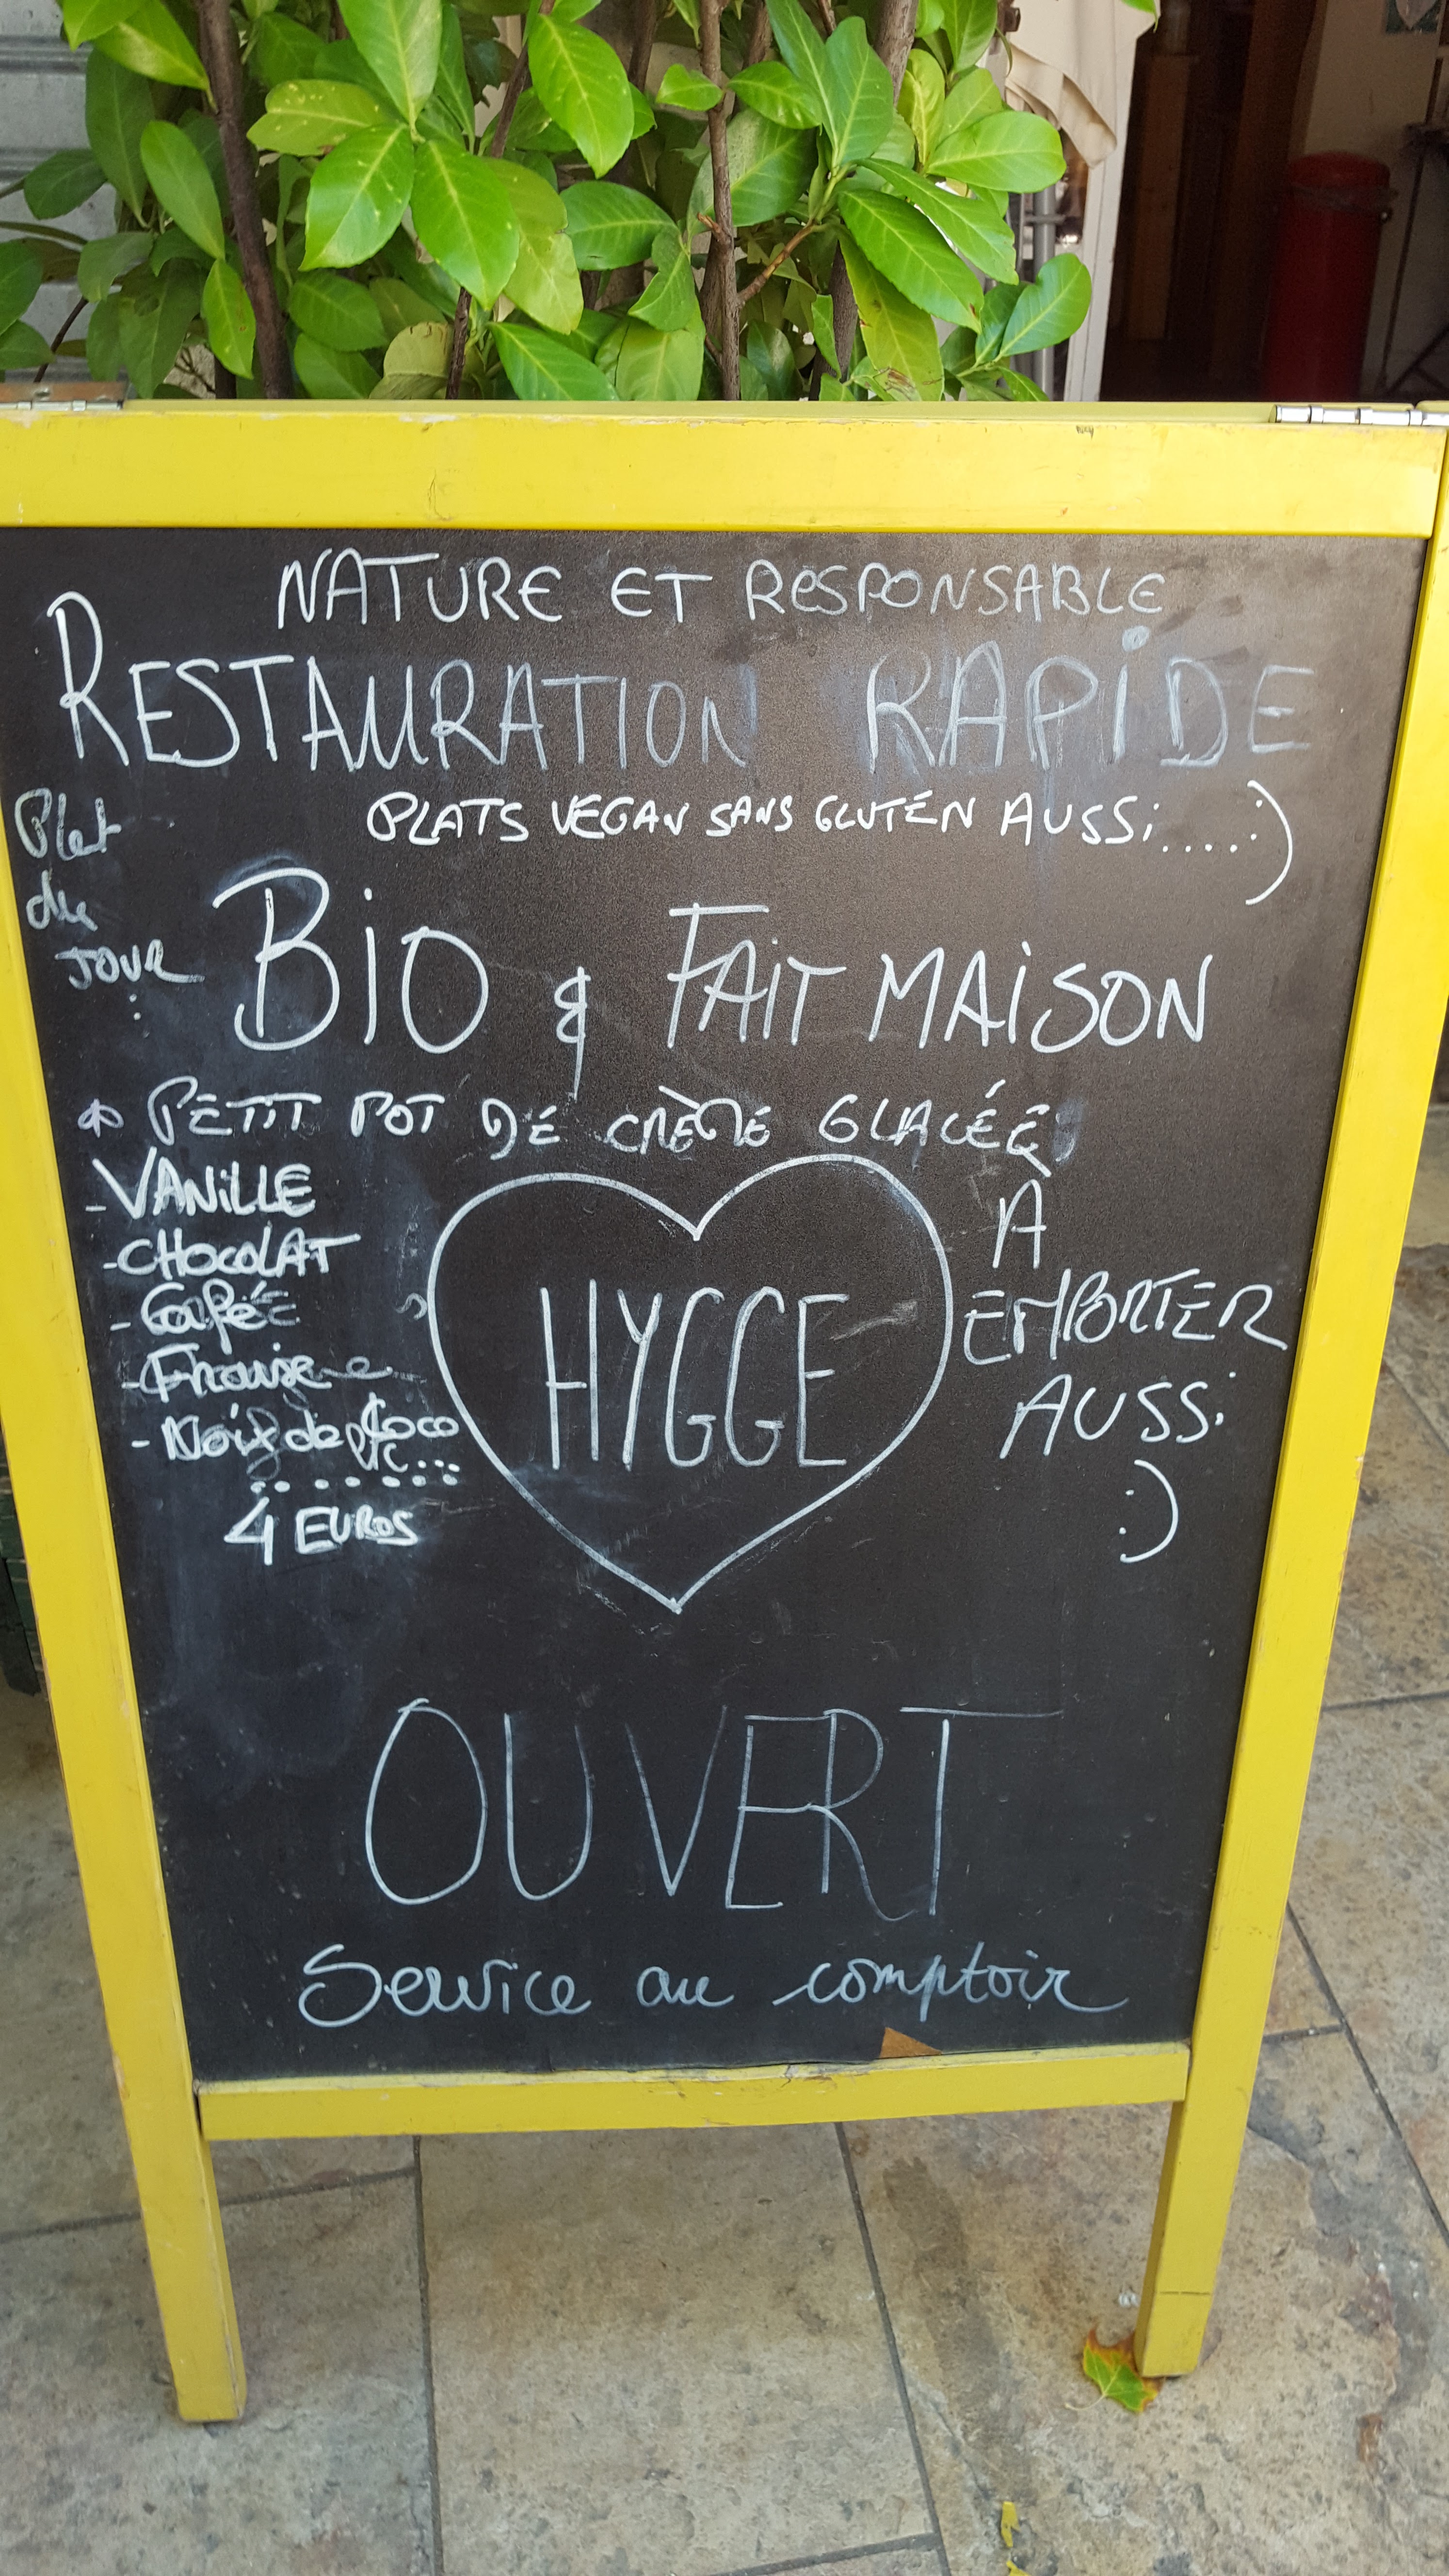 NATURE ET RESPONSABLE
RESTAURATION RAPIDE
PLATS VEGAN SANS GLUTEN AUSSI.....:)
Plat
du
JOUR
:
BIO & FAIT MAISON
PETIT POT DE CRÈME GLACÉE
-VANILLE
-CHOCOLAT
-Café
-Fraise
-Noix de Coco
etc...
4 EUROS
HYGGE
À
EMPORTER
AUSSI
:)
OUVERT
Service au comptoir